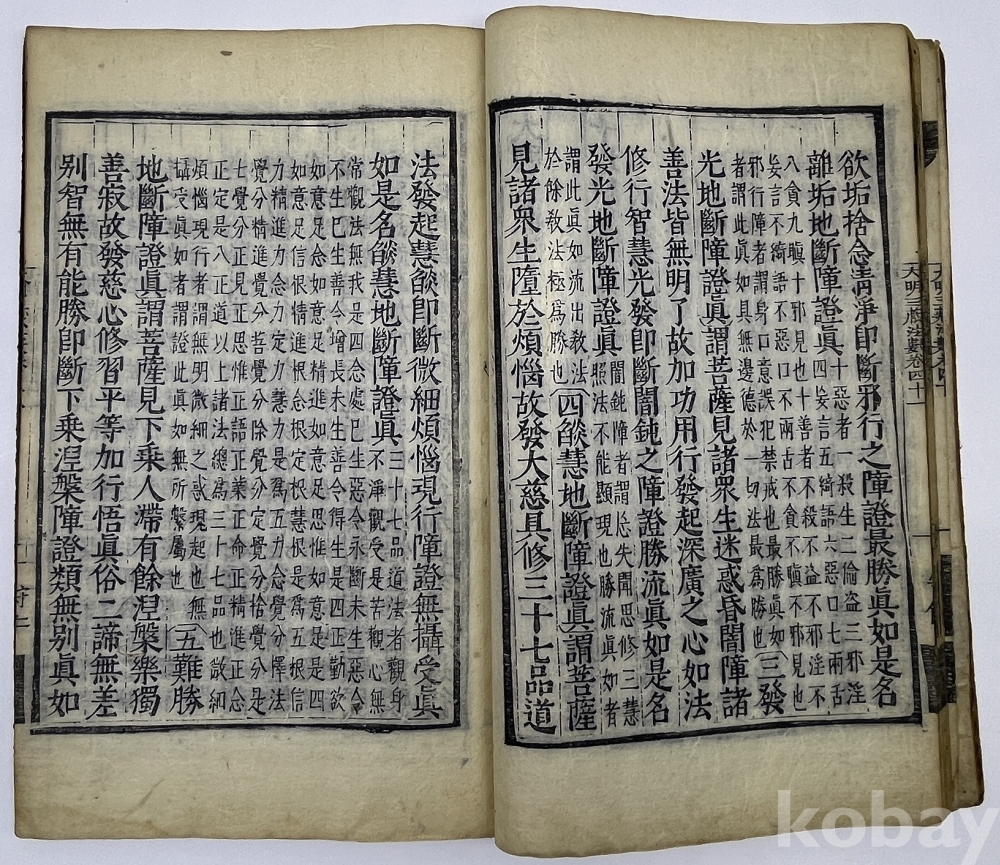 欲垢捨念清淨即斷邪行之障證最勝眞如是名
離垢地斷障證眞十惡者一殺生二偷盗三邪淫
四妄言五綺語六惡口七兩舌
八貪九瞋十邪見也十善者不殺不盗不邪淫不
妄言不綺語不惡口不兩舌不貪不瞋不邪見也
邪行障者謂身口意誤犯禁戒也最勝眞如
者謂此眞如具無邊德於一切法最爲勝也三發
光地斷障證眞謂菩薩見諸衆生迷惑昏闇障諸
善法皆無明了故加功用行發起深廣之心如法
修行智慧光發即斷闇鈍之障證勝流眞如是名
發光地斷障證眞闇鈍障者謂忘失聞思修三慧
照法不能顯現也勝流眞如者
謂此眞如流出教法
於餘教法極爲勝也四燄慧地斷障證眞謂菩薩
見諸衆生墮於煩惱故發大慈具修三十七品道
大明三藏法數卷四十
法發起慧燄即斷微細煩惱現行障證無攝受眞
如是名燄慧地斷障證眞三十七品道法者觀身
不淨觀受是苦觀心無
常觀法無我是四念處已生惡令永斷未生惡令
不生已生善令增長未生善令得生是四正勤欲
如意足念如意足進如意足思惟如意足是四
如意足信根精進根念根定根慧根是爲五根信
力精進力念力定力慧力是爲五力念覺分擇法
覺分精進覺分喜覺分除覺分定覺分捨覺分是
七覺分正見正思惟正語正業正命正精進正念
正定是八正道以上諸法總爲三十七品也微細
煩惱現行者即無明微細之惑現起也無
攝受眞如者謂證此眞如無所繫屬也五難勝
地斷障證眞謂菩薩見下乘人滯有餘涅槃樂獨
善寂故發慈心修習平等加行悟眞俗二諦無差
別智無有能勝即斷下乘涅槃障證類無別眞如
kobay